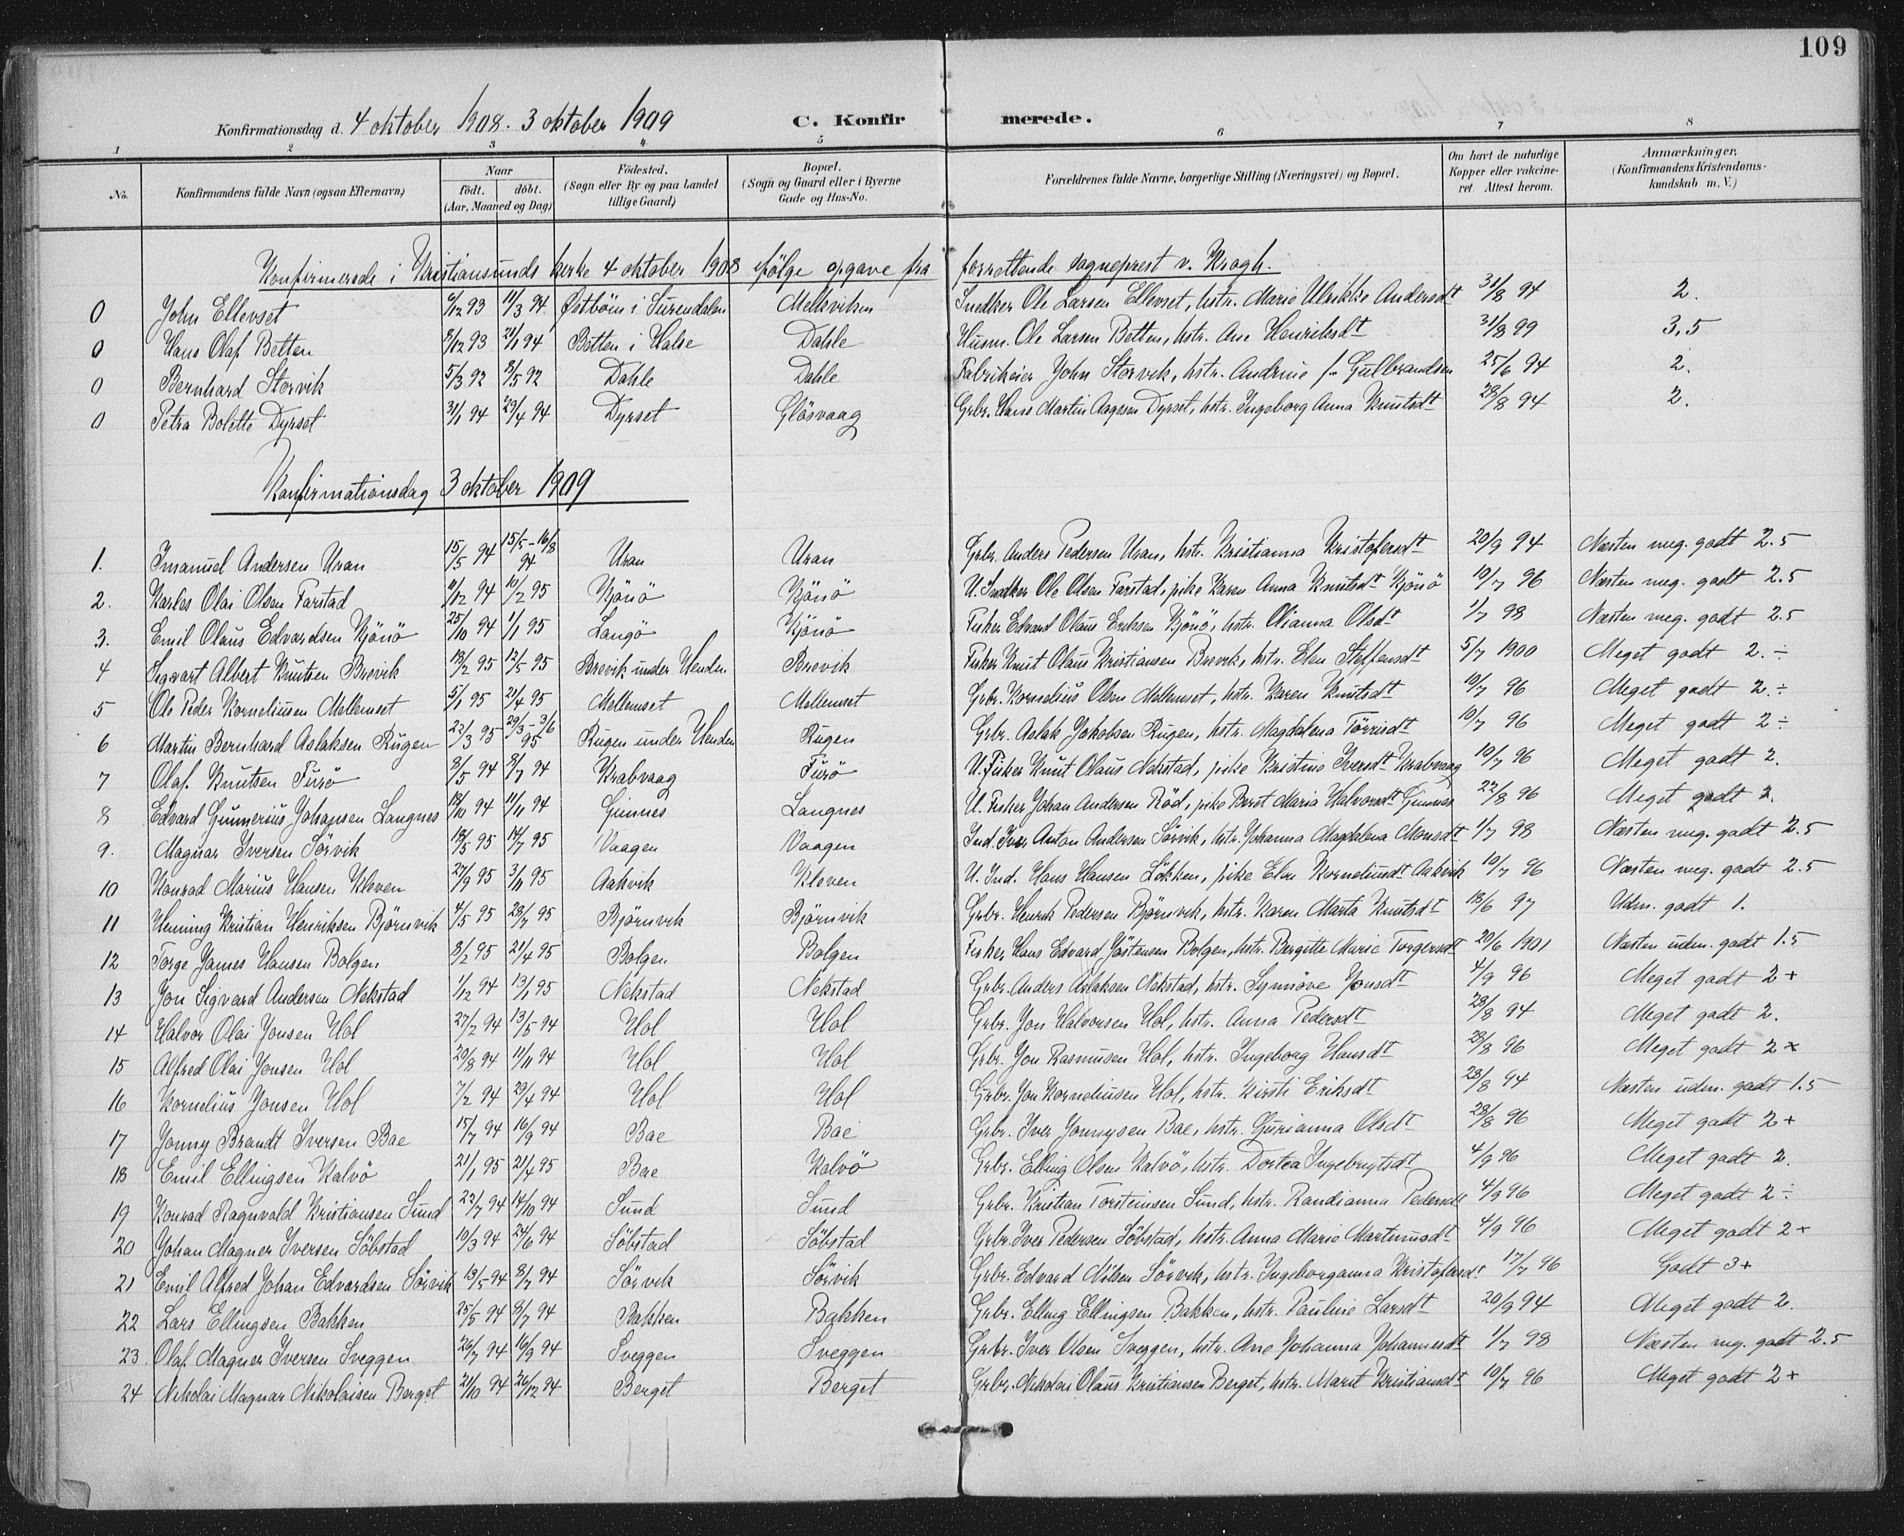 109
Konfirmationsdag d. 4 oktober 1908. 3 oktober 1909 C. Konfirmerede.
1 2 3 4 5 6 7 8
No. Konfirmandens fulde Navn (ogsaa Efternavn) Naar födt. döbt. (Aar, Maaned og Dag) Födested. (Sogn eller By og paa Landet tillige Gaard) Bopæl. (Sogn og Gaard eller i Byerne Gade og Hus-No. Forældrenes fulde Navne, borgerlige Stilling (Næringsvei) og Bopæl. Om havt de naturlige Kopper eller vakcineret Attest herom. Anmærkninger. (Konfirmandens Kristendomskundskab m. V.)
Konfirmerede i Kristiansunds kirke 4 oktober 1908 ifölge opgave fra forrettende sogneprest v. Krogh.
0 John Ellevset 9/12 93 11/3 94 Østbön i Surendalen Melkviken Snedker Ole Larsen Ellevset, hstr. Marie Ulrikke Andersdt 31/8 94 2.
0 Hans Olaf Betten 8/12 93 21/1 94 Betten i Halse Dahle Husm. Ole Larsen Betten, hstr. Ane Henriksdt 31/8 99 3,5
0 Bernhard Storvik 5/3 92 8/5 92 Dahle Dahle Fabrikeier John Storvik, hstr. Andrine f. Gulbrandsen 25/6 94 2.
0 Petra Bolette Dyrset 31/1 94 29/4 94 Dyrset Glösvaag Grbr. Hans Martin Aagesen Dyrset, hstr. Ingeborg Anna Knutsdt 28/8 94 2.
Konfirmationsdag 3 oktober 1909
1. Imanuel Andersen Uran 15/5 94 15/5-16/8 94 Uran Uran Grbr. Anders Pedersen Uran, hstr. Kristianna Kristofersdt 20/9 94 Næsten meg. godt 2.5
2. Karles Olai Olsen Farstad 11/12 94 10/2 95 Kjönö Kjönö U. Snedker Ole Olsen Farstad, pike Karen Anna Knutsdt Kjönö 10/7 96 Næsten meg. godt 2.5
3. Emil Olaus Edvardsen Kjönö 25/10 94 1/1 95 Langö Kjönö Fisker Edvard Olaus Eriksen Kjönö, hstr. Olianna Olsdt 1/7 98 Næsten meg. godt 2.5
4 Sigvart Albert Knutsen Brevik 18/2 95 12/5 95 Brevik under Henden Brevik Fisker Knut Olaus Kristiansen Brevik, hstr. Elen Steffensdt 5/7 1900 Meget godt 2.÷
5 Ole Peder Korneliusen Mellemset 5/1 95 21/4 95 Mellemset Mellemset Grbr. Kornelius Olsen Mellemset, hstr. Karen Knutsdt 10/7 96 Meget godt 2.÷
6 Martin Bernhard Aslaksen Rugen 22/3 95 29/3-3/6 95 Rugen under Henden Rugen Grbr. Aslak Jakobsen Rugen, hstr. Magdalena Törrisdt 10/7 96 Meget godt 2÷
7 Olaf Knutsen Furö 8/5 94 8/7 94 Krabvaag Furö U. Fisker Knut Olaus Nekstad, pike Kristine Iversdt Krabvaag 10/7 96 Meget godt 2.
8 Edvard Gunnerius Johansen Langnes 18/10 94 11/11 94 Ginnes Langnes U. Fisker Johan Andersen Röd, pike Beret Maria Halvorsdt Ginnes 22/8 96 Meget godt 2.
9. Magnar Iversen Sörvik 18/5 95 14/7 95 Vaagen Vaagen Ind. Iver Anton Andersen Sörvik, hstr. Johanna Magdalena Monsdt 1/7 98 Næsten meg. godt 2.5
10 Konrad Marius Hansen Kleven 27/9 95 3/11 95 Aakvik Kleven U. Ind. Hans Hansen Lökken, pike Elen Korneliusdt Aakvik 10/7 96 Næsten meg. godt 2.5
11 Henning Kristian Henriksen Björnvik 4/5 95 28/7 95 Björnvik Björnvik Grbr. Henrik Pedersen Björnvik, hstr. Karen Marta Knutsdt 18/6 97 Udm. godt 1.
12 Torge James Hansen Bolgen 8/2 95 21/4 95 Bolgen Bolgen Fisker Hans Edvard Jöstensen Bolgen, hstr. Bergitte Marie Torgersdt 20/6 1901 Næsten udm. godt 1.5
13 Jon Sigvard Andersen Nekstad 1/12 94 13/1 95 Nekstad Nekstad Grbr. Anders Aslaksen Nekstad, hstr. Synnöve Jonsdt 4/9 96 Meget godt 2+
14 Halvor Olai Jonsen Hol 27/2 94 13/5 94 Hol Hol Grbr. Jon Halvorsen Hol, hstr. Anna Pedersdt 28/8 94 Meget godt 2.
15 Alfred Olai Jonsen Hol 20/8 94 11/11 94 Hol Hol Grbr. Jon Rasmusen Hol, hstr. Ingeborg Hansdt 28/8 96 Meget godt 2+
16 Kornelius Jonsen Hol 7/2 94 29/4 94 Hol Hol Grbr. Jon Korneliusen Hol, hstr. Kirsti Eriksdt 28/8 94 Næsten udm. godt 1.5
17 Jonny Brandt Iversen Bae 15/7 94 16/9 94 Bae Bae Grbr. Iver Jonnysen Bae, hstr. Gurianna Olsdt 28/8 96 Meget godt 2+
18 Emil Ellingsen Kalvö 21/1 95 21/4 95 Bae Kalvö Grbr. Elling Olsen Kalvö, hstr. Dortea Ingebrigtsdt 4/9 96 Meget godt 2.
19 Konrad Ragnvald Kristiansen Sund 22/7 94 14/10 94 Sund Sund Grbr. Kristian Torsteinsen Sund, hstr. Randianna Pedersdt 4/9 96 Meget godt 2÷
20 Johan Magner Iversen Söbstad 10/3 94 24/6 94 Söbstad Söbstad Grbr. Iver Pedersen Söbstad, hstr. Anna Marie Martinusdt 4/9 96 Meget godt 2+
21 Emil Alfred Johan Edvardsen Sörvik 13/5 94 8/7 94 Sörvik Sörvik Grbr. Edvard Nilsen Sörvik, hstr. Ingeborganna Kristofersdt 17/7 96 Godt 3+
22 Lars Ellingsen Bakken 25/5 94 8/7 94 Bakken Bakken Grbr. Elling Ellingsen Bakken, hstr. Pauline Larsdt 20/9 94 Meget godt 2.
23. Olaf Magner Iversen Sveggen 26/7 94 16/9 94 Sveggen Sveggen Grbr. Iver Olsen Sveggen, hstr. Ane Johanna Johannesdt 1/7 98 Næsten meg. godt 2.5
24 Nikolai Magnar Nikolaisen Berget 21/10 94 26/12 94 Berget Berget Grbr. Nikolai Olaus Kristiansen Berget, hstr. Marit Kristiansdt 10/7 96 Meget godt 2+